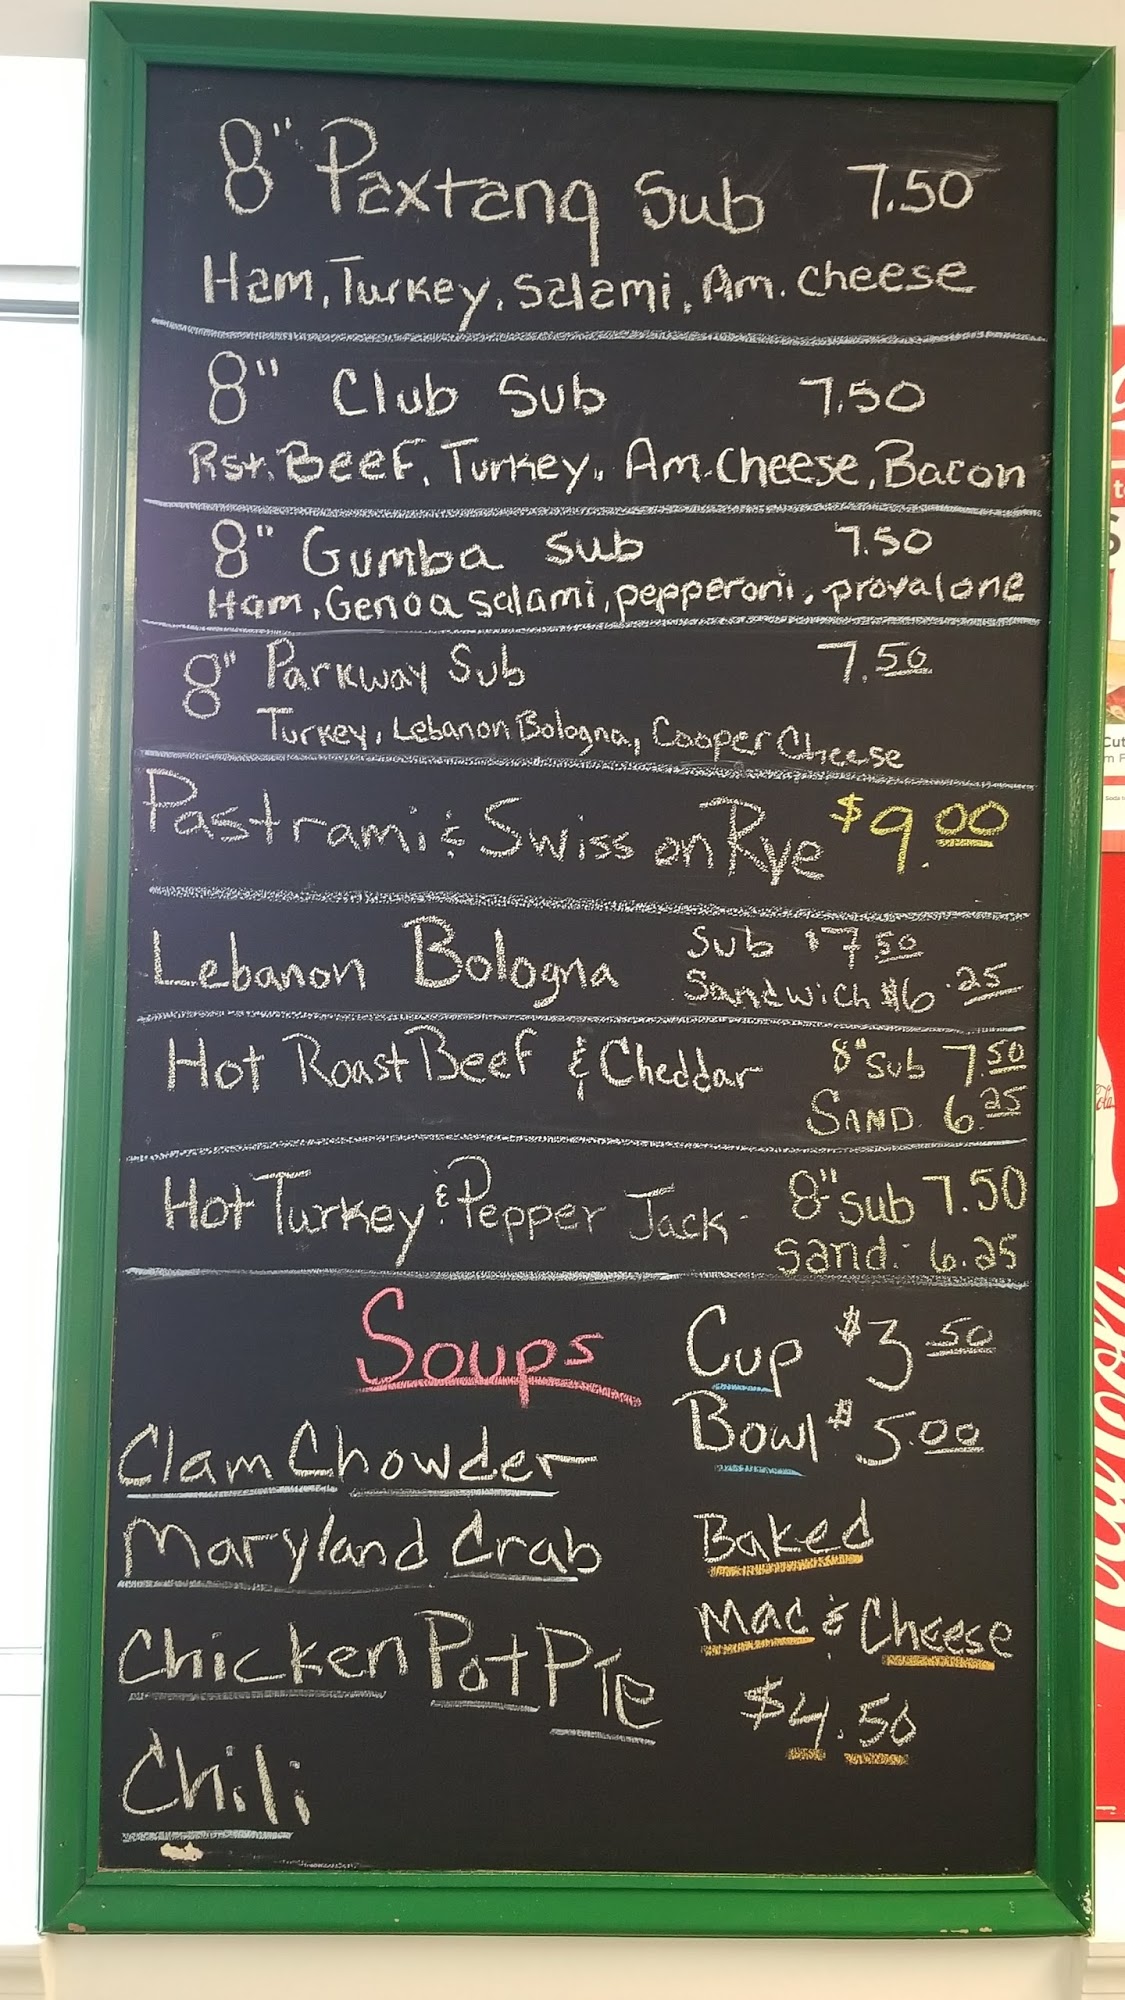 8" Paxtang Sub 7.50
Ham, Turkey, Salami, Am. cheese
8" Club Sub 7.50
Rst. Beef, Turkey, Am. Cheese, Bacon
8" Gumba Sub 7.50
Ham, Genoa salami, pepperoni, provalone
8" Parkway Sub 7.50
Turkey, Lebanon Bologna, Cooper Cheese
Pastrami & Swiss on Rye $9.00
Lebanon Bologna Sub $7.50
Sandwich $6.25
Hot Roast Beef & Cheddar 8" Sub 7.50
SAND. 6.25
Hot Turkey & Pepper Jack - 8" sub 7.50
sand. 6.25
Soups Cup $3.50
Bowl $5.00
Clam Chowder
Maryland Crab
Chicken Pot Pie
Chili
Baked
Mac & Cheese
$4.50